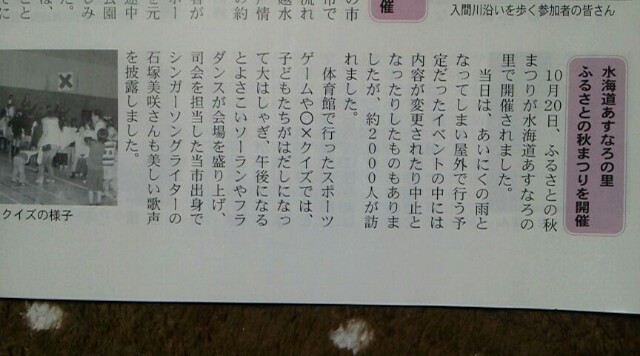 入間川沿いを歩く参加者の皆さん
催
水海道あすなろの里
ふるさとの秋まつりを開催
10月20日、ふるさとの秋
まつりが水海道あすなろの
里で開催されました。
当日は、あいにくの雨と
なってしまい屋外で行う予
定だったイベントの中には
内容が変更されたり中止と
なったりしたものもありま
したが、約2000人が訪
れました。
体育館で行ったスポーツ
ゲームや〇✕クイズでは、
子どもたちがはだしになっ
て大はしゃぎ、午後になる
とよさこいソーランやフラ
ダンスが会場を盛り上げ、
司会を担当した当市出身で
シンガーソングライターの
石塚美咲さんも美しい歌声
を披露しました。
クイズの様子